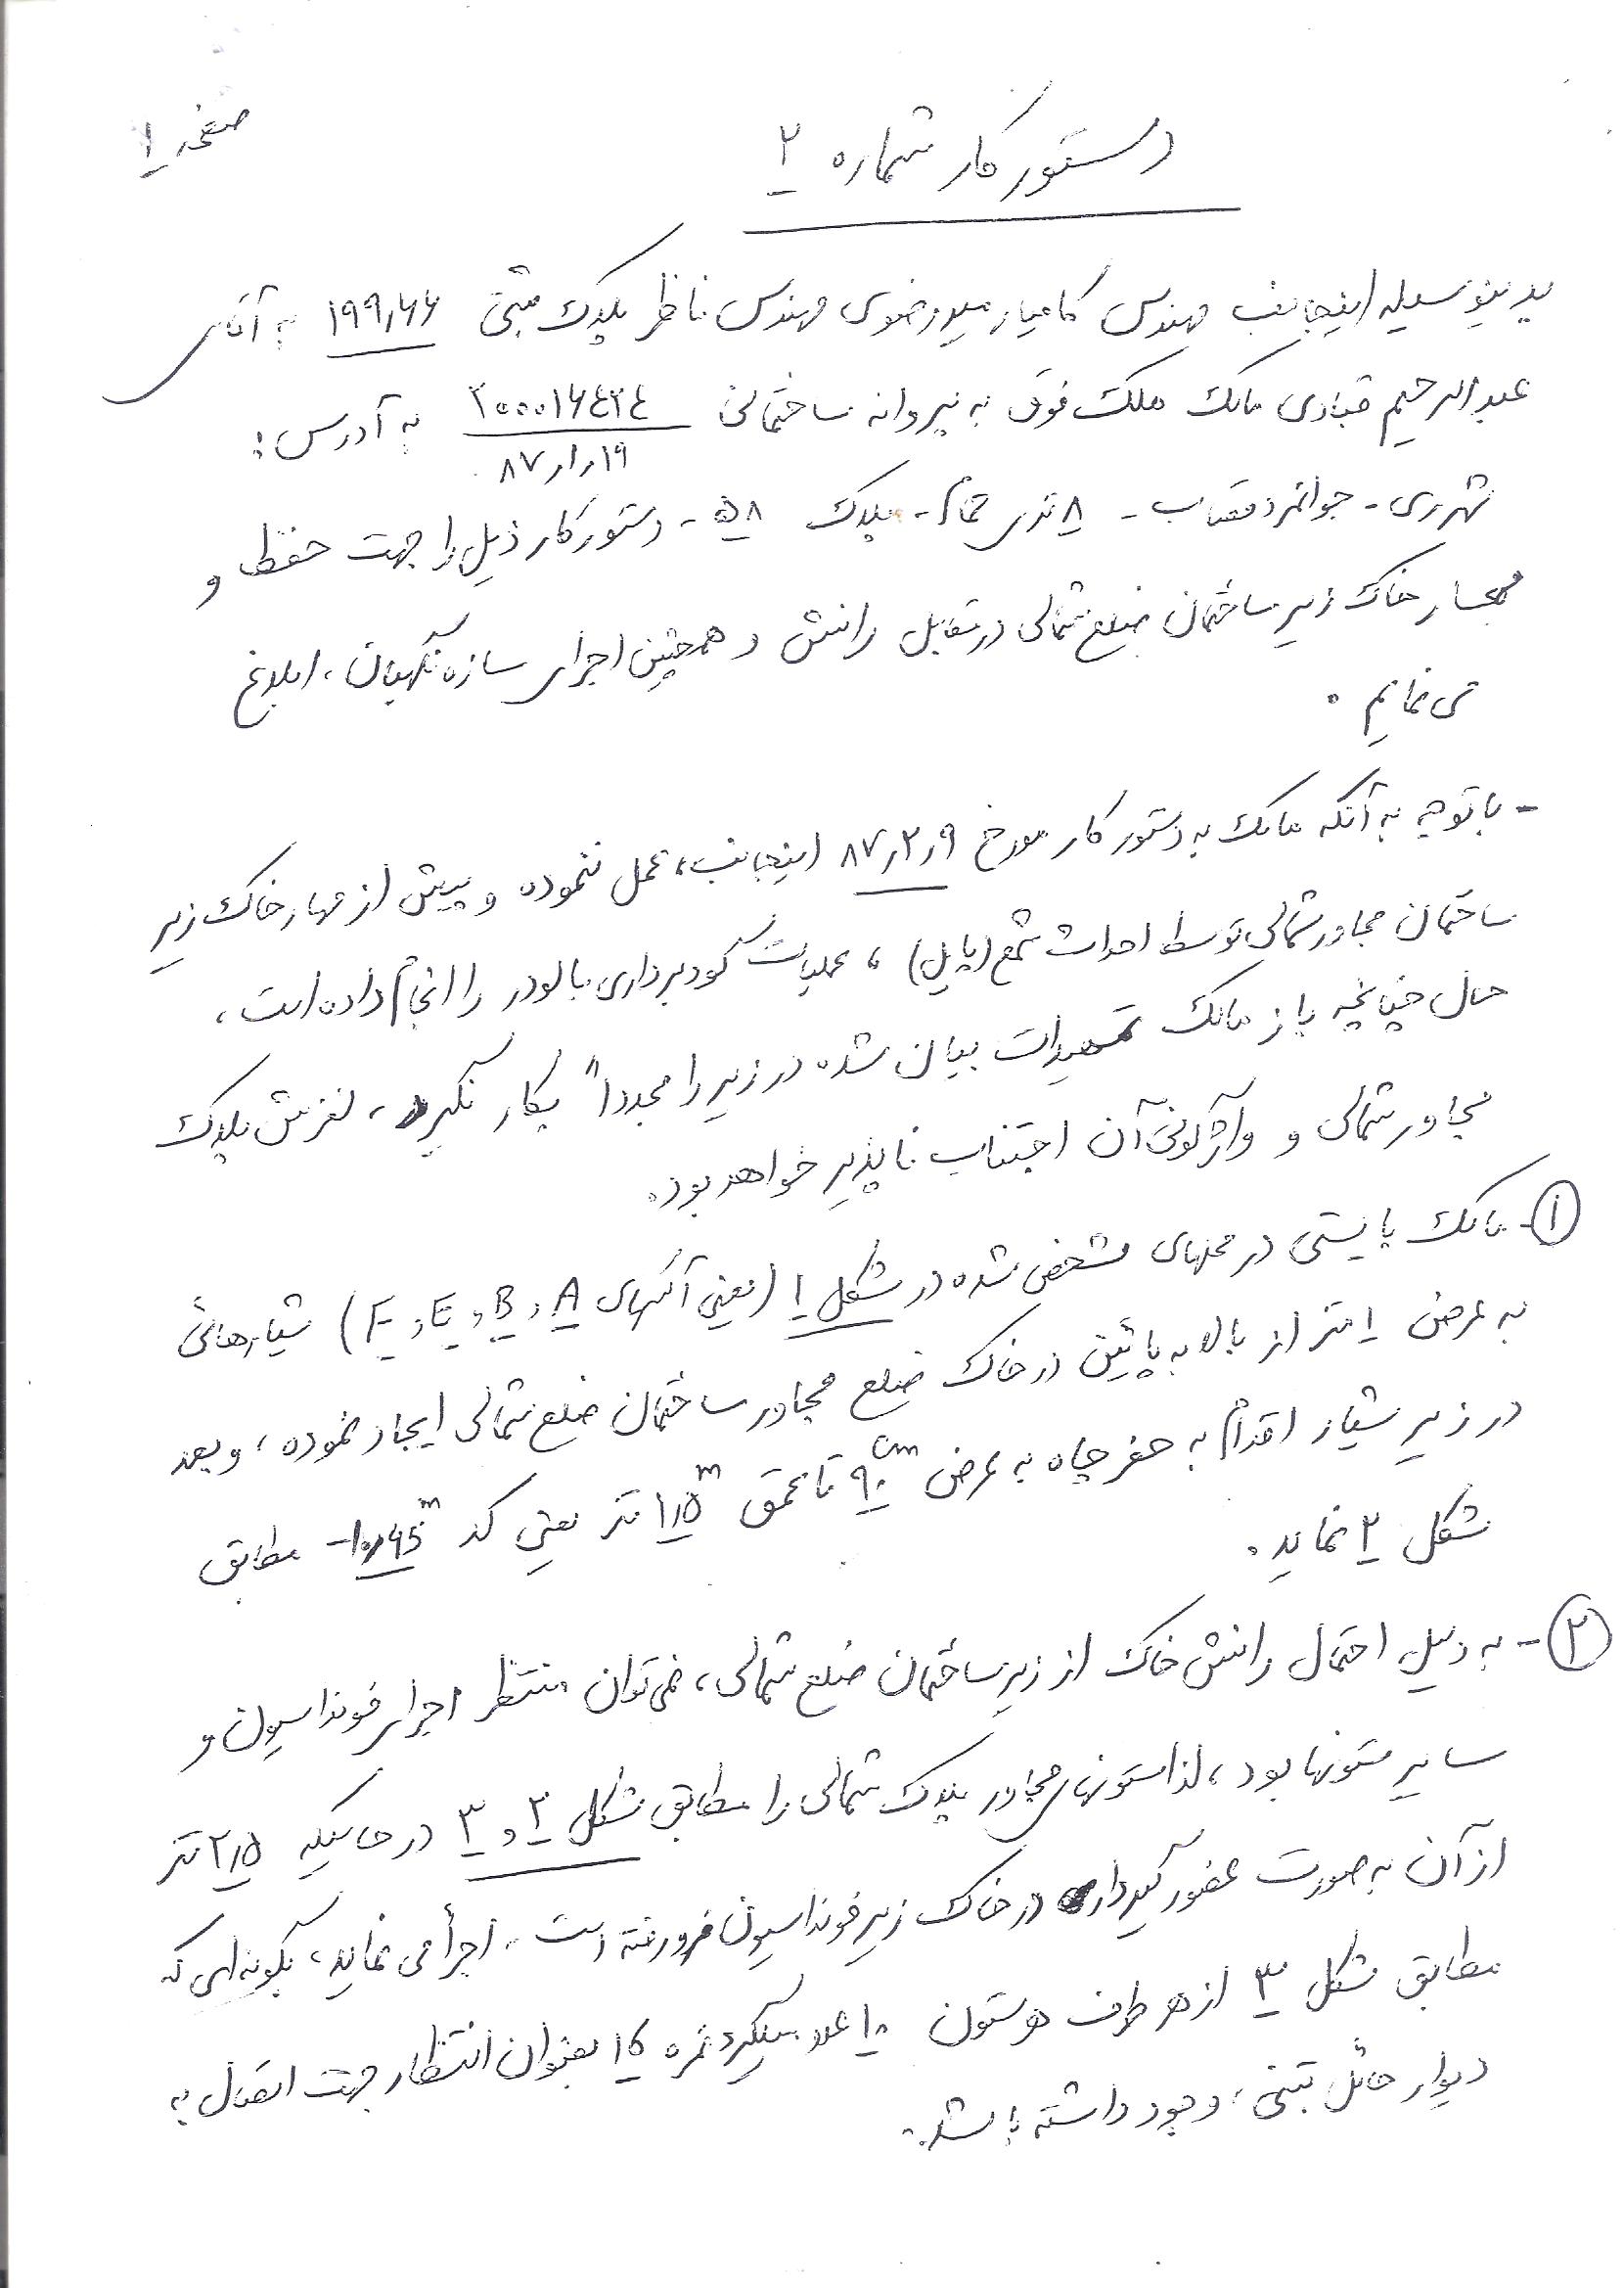 صفحه ۱
دستور کار شماره ۲
بدینوسیله اینجانب مهندس کامیار میررضوی مهندس ناظر پلاک ثبتی ۱۹۹٫۶۶ به آقای
عبدالرحیم قبادی مالک ملک فوق به پروانه ساختمانی ۲۰۰۰۱۶۴۳۴ به آدرس:
۸۷٫۱٫۱۹
شهرری - جوانمرد قصاب - ۸ متری حمام - پلاک ۵۸ - دستور کار ذیل را جهت حفظ و
مهار خاک زیر ساختمان ضلع شمالی در مقابل رانش و همچنین اجرای سازه نگهبان، ابلاغ
می نمایم.
- با توجه به آنکه مالک به دستور کار مورخ ۸۷٫۲٫۹ اینجانب، عمل ننموده و پیش از مهار خاک زیر
ساختمان مجاور شمالی توسط احداث شمع (پایل)، عملیات گودبرداری با لودر را انجام داده است،
حال چنانچه باز مالک تمهیدات بیان شده در زیر را مجدداً بکار نگیرد، لغزش پلاک
مجاور شمالی و واژگونی آن اجتناب ناپذیر خواهد بود.
۱- مالک بایستی در محلهای مشخص شده در شکل ۱ (یعنی آکسهای A و B و E و F) شیارهائی
به عرض ۱ متر از بالا به پائین در خاک ضلع مجاور ساختمان ضلع شمالی ایجاد نموده، و بعد
در زیر شیار اقدام به حفر چاه به عرض ۹۰ cm تا عمق ۱٫۵ m متر یعنی کد m مطابق
شکل ۲ نماید.
۲- به دلیل احتمال رانش خاک از زیر ساختمان ضلع شمالی، نمی توان منتظر اجرای فونداسیون و
سایر ستونها بود، لذا ستونهای مجاور پلاک شمالی را مطابق شکل ۲ و ۳ در حالیکه ۲٫۵ متر
از آن به صورت عضو گیردار در خاک زیر فونداسیون فرو رفته است، اجرا می نماید، بگونه ای که
مطابق شکل ۳ از هر طرف هر ستون ۱۰ عدد میلگرد نمره ۱۶ بعنوان انتظار جهت اتصال به
دیوار حائل بتنی، وجود داشته باشد.